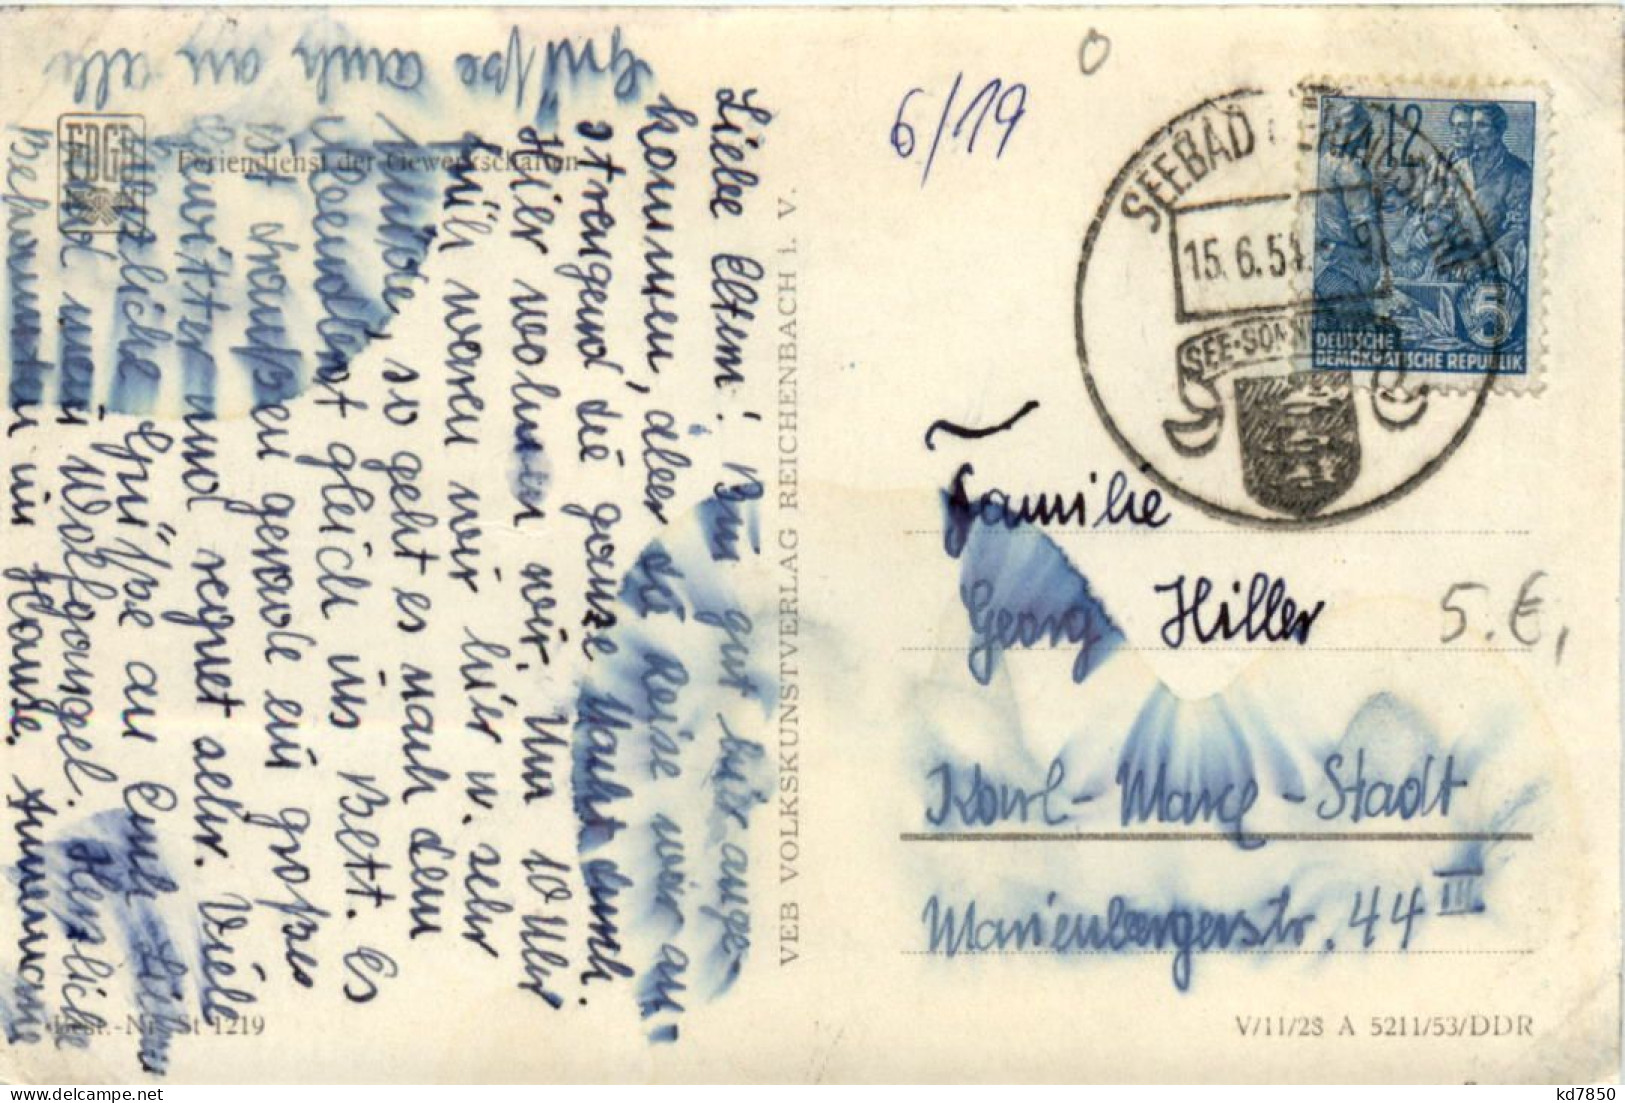 Grüße auch an alle
Liebe Eltern! Bin gut hier ange-
kommen, aber die Reise war an-
strengend die ganze Nacht durch.
Hier wohnen wir. Um 10 Uhr
waren wir hier u. sehr
müde, so geht es nach dem
Abendbrot gleich ins Bett. Es
ist draußen gerade ein großes
Gewitter und regnet sehr. Viele
herzliche Grüße an Euch Lieben
und mein Wolfgangel. Herzliche
Bekannten im Hause. Annemarie
FDGB
Feriendienst der Gewerkschaften
Best.-Nr. St 1219
VEB VOLKSKUNSTVERLAG REICHENBACH i. V.
6/19
SEEBAD
15.6.54
SEE-SONNE
12
5
DEUTSCHE
DEMOKRATISCHE REPUBLIK
Familie
Georg Hiller
5.€,
Karl-Marx-Stadt
Marienbergerstr. 44 III
V/11/28 A 5211/53/DDR
kd7850